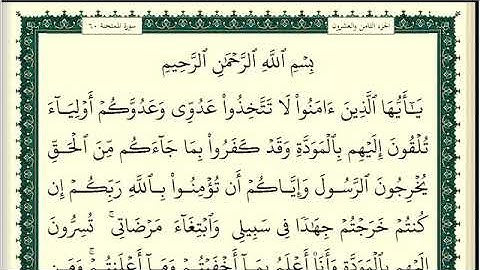 الجزء الثامن والعشرون
سورة الممتحنة ٦٠
بِسْمِ ٱللَّهِ ٱلرَّحْمَٰنِ ٱلرَّحِيمِ
يَـٰٓأَيُّهَا ٱلَّذِينَ ءَامَنُوا۟ لَا تَتَّخِذُوا۟ عَدُوِّى وَعَدُوَّكُمْ أَوْلِيَآءَ
تُلْقُونَ إِلَيْهِم بِٱلْمَوَدَّةِ وَقَدْ كَفَرُوا۟ بِمَا جَآءَكُم مِّنَ ٱلْحَقِّ
يُخْرِجُونَ ٱلرَّسُولَ وَإِيَّاكُمْ أَن تُؤْمِنُوا۟ بِٱللَّهِ رَبِّكُمْ إِن
كُنتُمْ خَرَجْتُمْ جِهَـٰدًا فِى سَبِيلِى وَٱبْتِغَآءَ مَرْضَاتِى ۚ تُسِرُّونَ
إِلَيْهِم بِٱلْمَوَدَّةِ وَأَنَا۠ أَعْلَمُ بِمَآ أَخْفَيْتُمْ وَمَآ أَعْلَنتُمْ ۚ وَمَن